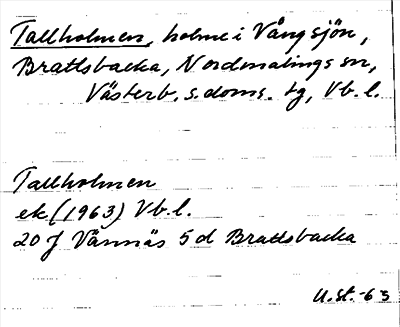 Tallholmen, holme i Vångsjön,
Brattsbacka, Nordmalings sn,
Västerb. s. doms. tg, Vb. l.
Tallholmen
ek (1963) Vb. l.
20 J Vännäs 5 d Brattsbacka
U.St. -63